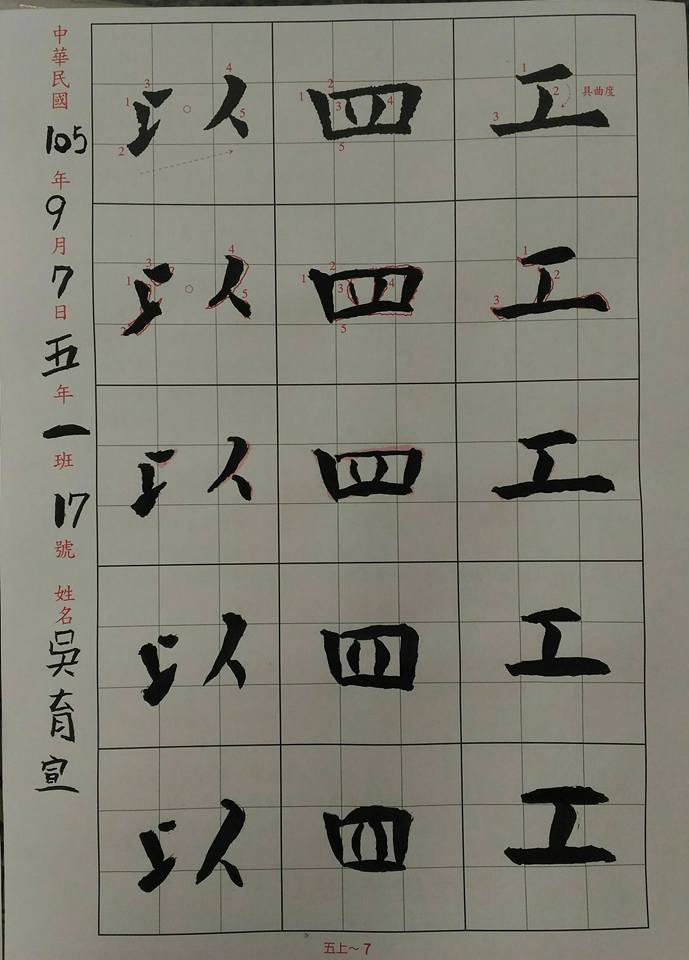 工 1 2 3
具曲度
工 1 2 3
工
工
工
四 1 2 3 4 5
四 1 2 3 4 5
四
四
四
以 1 2 3 4 5
以 1 2 3 4 5
以
以
以
中華民國 105 年 9 月 7 日 五 年 一 班 17 號 姓名 吳育宣
五上～7